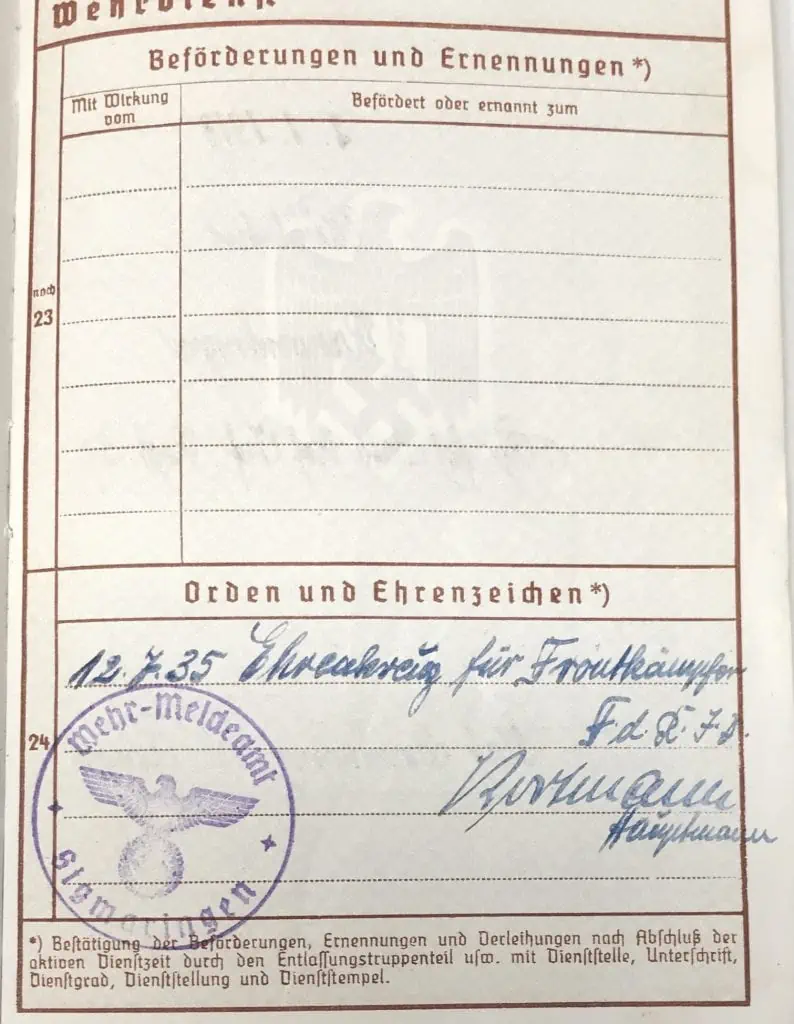 Wehrdienst
Beförderungen und Ernennungen *)
Mit Wirkung vom
Befördert oder ernannt zum
noch
23
Orden und Ehrenzeichen *)
12.7.35 Ehrenkreuz für Frontkämpfer
F. d. R. J. D.
24
Wehr-Meldeamt
Hauptmann
Sigmaringen
*) Bestätigung der Beförderungen, Ernennungen und Verleihungen nach Abschluß der
aktiven Dienstzeit durch den Entlassungstruppenteil usw. mit Dienststelle, Unterschrift,
Dienstgrad, Dienststellung und Dienststempel.